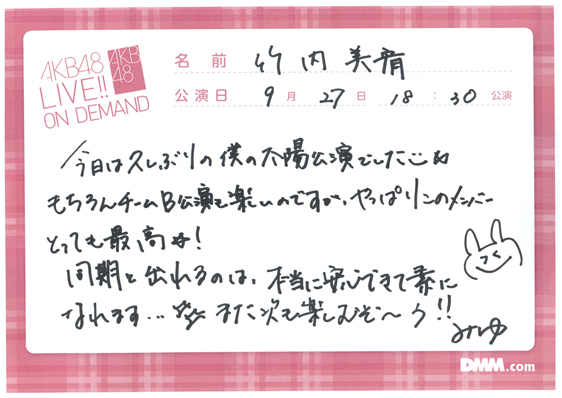 AKB48
LIVE!!
ON DEMAND
AKB
48
名前 竹内美宥
公演日 9月27日 18:30公演
今日は久しぶりの僕の太陽公演でした
もちろんチームB公演も楽しいのですが、やっぱりこのメンバー
とっても最高
同期と出れるのは、本当に安心できて素に
なれます… また次も楽しむぞ〜う!!
みゆ
DMM.com